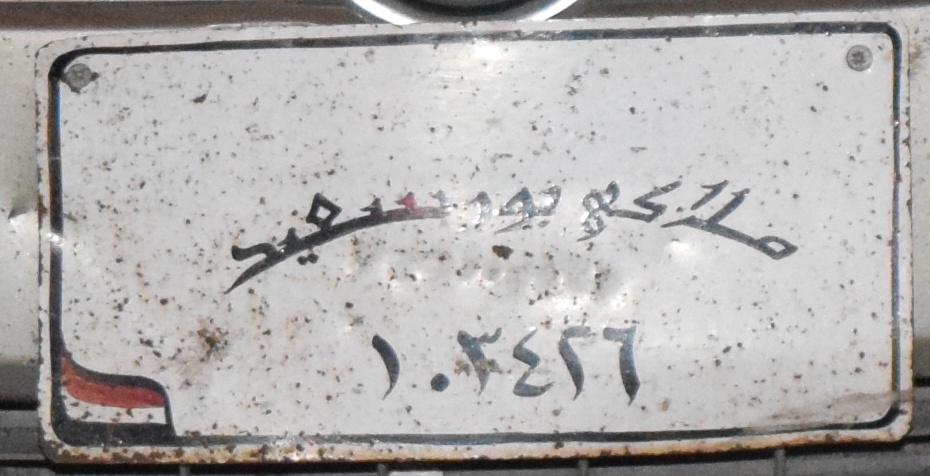 ملاكي بورسعيد
١٠٣٤٢٦